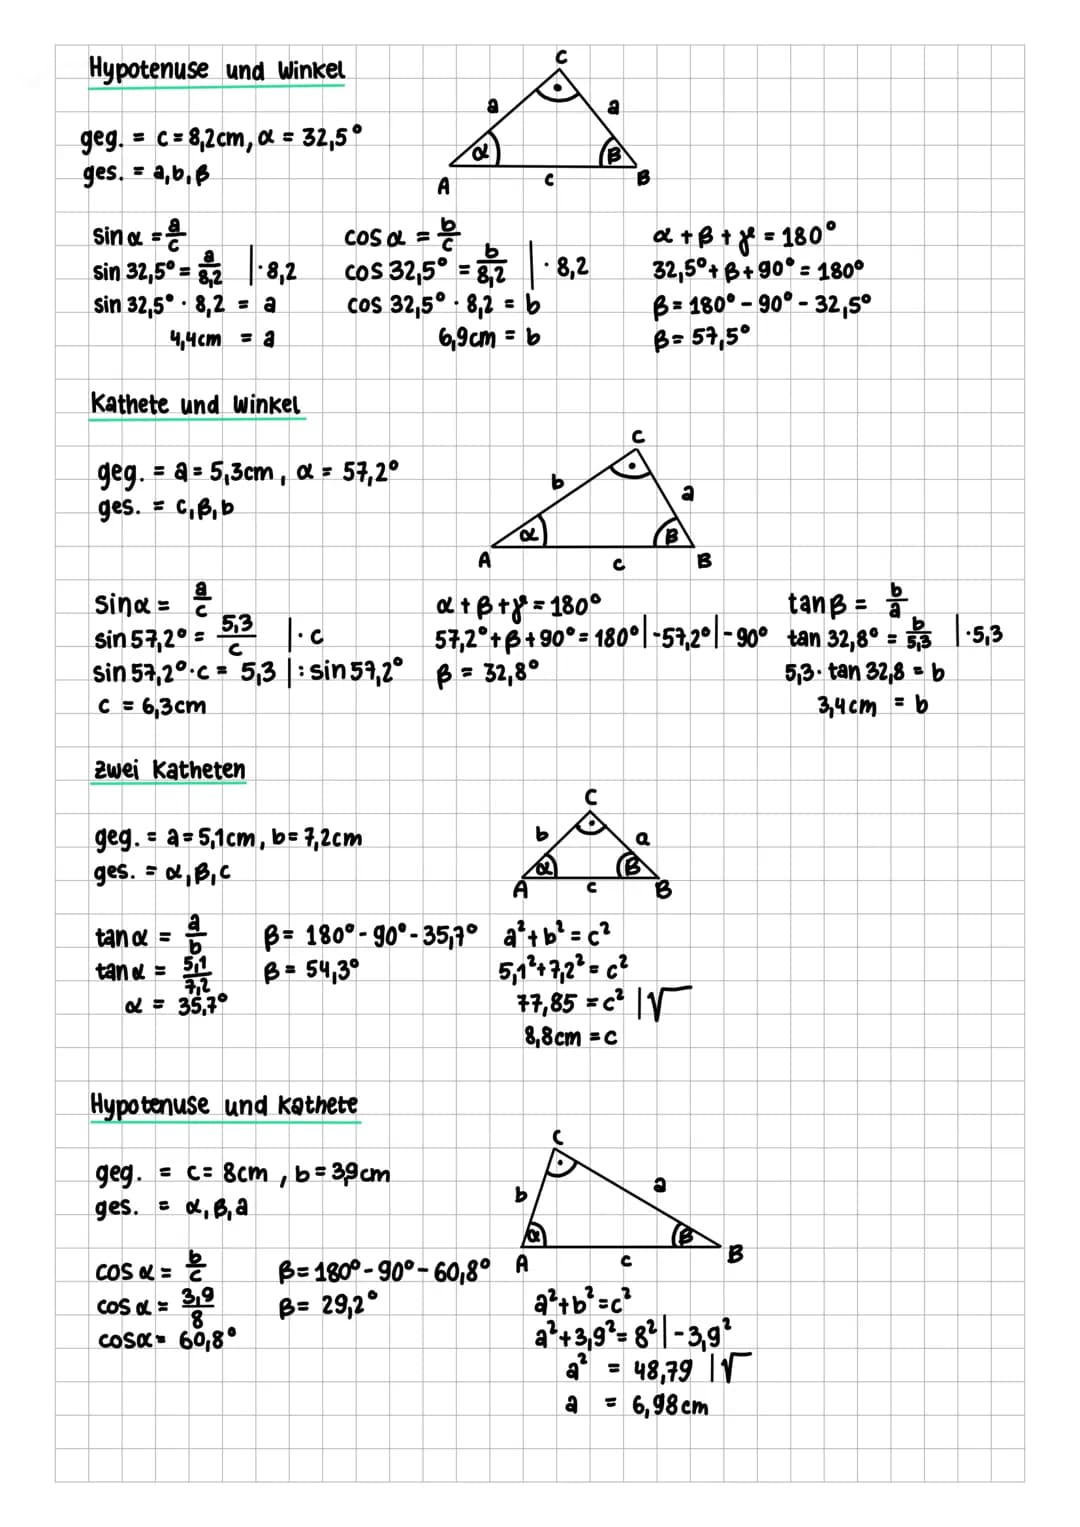 Hypotenuse und Winkel
C
a
a
α
β
A
c
B
geg. = c = 8,2cm, α = 32,5°
ges. = a, b, β
sin α = a/c
sin 32,5° = a/8,2 | · 8,2
sin 32,5° · 8,2 = a
4,4cm = a
cos α = b/c
cos 32,5° = b/8,2 | · 8,2
cos 32,5° · 8,2 = b
6,9cm = b
α + β + γ = 180°
32,5° + β + 90° = 180°
β = 180° - 90° - 32,5°
β = 57,5°
Kathete und Winkel
C
b
a
α
β
A
c
B
geg. = a = 5,3cm, α = 57,2°
ges. = c, β, b
sin α = a/c
sin 57,2° = 5,3/c | · c
sin 57,2° · c = 5,3 | : sin 57,2°
c = 6,3cm
α + β + γ = 180°
57,2° + β + 90° = 180° | -57,2° | - 90°
β = 32,8°
tan β = b/a
tan 32,8° = b/5,3 | · 5,3
5,3 · tan 32,8 = b
3,4cm = b
Zwei Katheten
C
b
a
α
β
A
c
B
geg. = a = 5,1cm, b = 7,2cm
ges. = α, β, c
tan α = a/b
tan α = 5,1/7,2
α = 35,7°
β = 180° - 90° - 35,7°
β = 54,3°
a² + b² = c²
5,1² + 7,2² = c²
77,85 = c² | √
8,8cm = c
Hypotenuse und Kathete
C
b
a
α
β
A
c
B
geg. = c = 8cm, b = 3,9cm
ges. = α, β, a
cos α = b/c
cos α = 3,9/8
cos α = 60,8°
β = 180° - 90° - 60,8°
β = 29,2°
a² + b² = c²
a² + 3,9² = 8² | - 3,9²
a² = 48,79 | √
a = 6,98cm